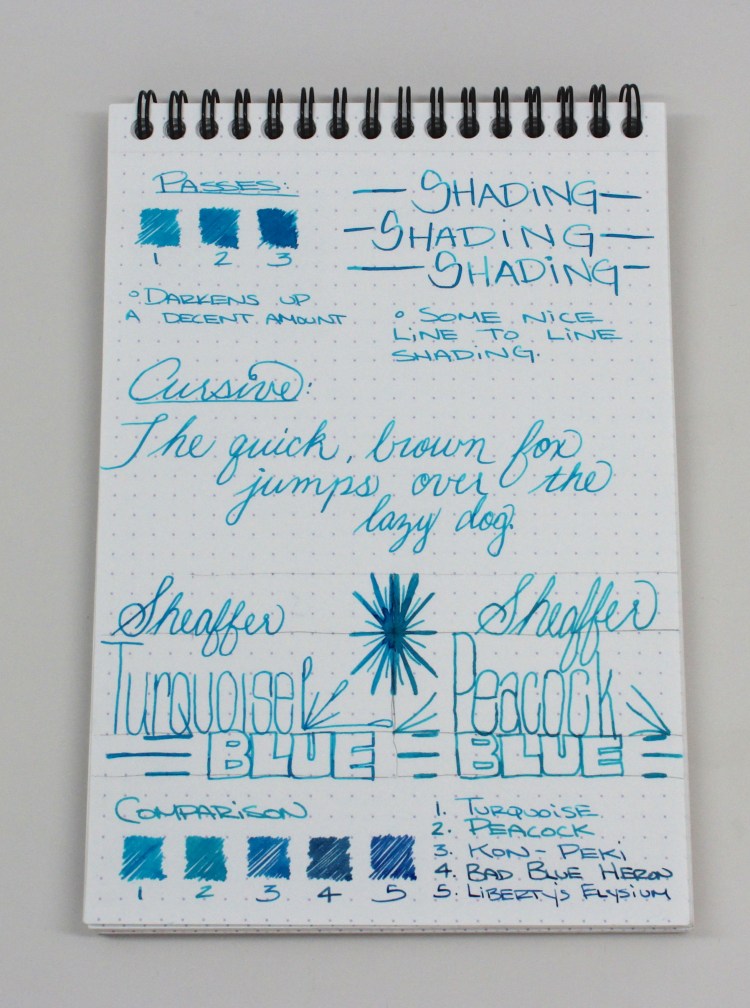 PASSES:
1 2 3
° DARKENS UP
A DECENT AMOUNT
— SHADING —
— SHADING —
— SHADING —
° SOME NICE
LINE TO LINE
SHADING.
Cursive:
The quick, brown fox
jumps over the
lazy dog.
Sheaffer
Turquoise
BLUE
Sheaffer
Peacock
BLUE
COMPARISON
1 2 3 4 5
1. TURQUOISE
2. PEACOCK
3. KON-PEKI
4. BAD BLUE HERON
5. LIBERTY'S ELYSIUM